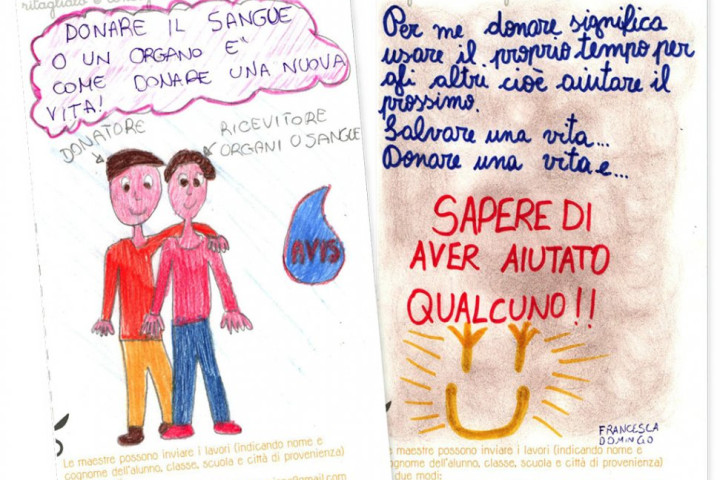 ritagliato
DONARE IL SANGUE
O UN ORGANO E'
COME DONARE UNA NUOVA
VITA!
DONATORE
RICEVITORE
ORGANI O SANGUE
AVIS
Le maestre possono inviare i lavori (indicando nome e
cognome dell'alunno, classe, scuola e città di provenienza)
@gmail.com
Per me donare significa
usare il proprio tempo per
gli altri cioè aiutare il
prossimo.
Salvare una vita...
Donare una vita e...
SAPERE DI
AVER AIUTATO
QUALCUNO!!
FRANCESCA
DOMINGO
le maestre possono inviare i lavori (indicando nome e
cognome dell'alunno, classe, scuola e città di provenienza)
due modi: